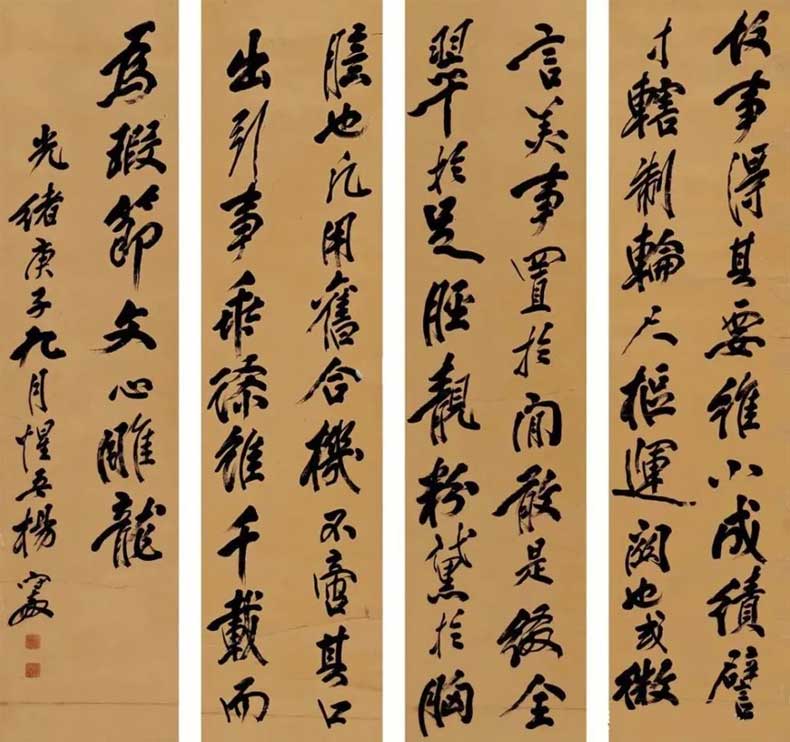 故事得其要雖小成績譬
寸轄制輪尺樞運關也或微
言美事置於閒散是綴金
翠於足脛靚粉黛於胸
臆也凡用舊合機不啻其口
出引事乖謬雖千載而
為瑕節文心雕龍
光緒庚子九月惺吾楊守敬